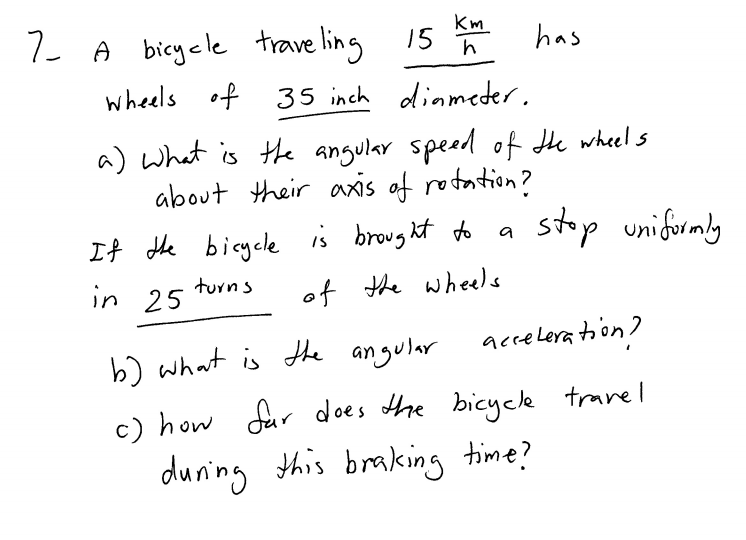 7- A bicycle traveling 15 km/h has
wheels of 35 inch diameter.
a) What is the angular speed of the wheels
about their axis of rotation?
If the bicycle is brought to a stop uniformly
in 25 turns of the wheels
b) what is the angular acceleration?
c) how far does the bicycle travel
during this braking time?